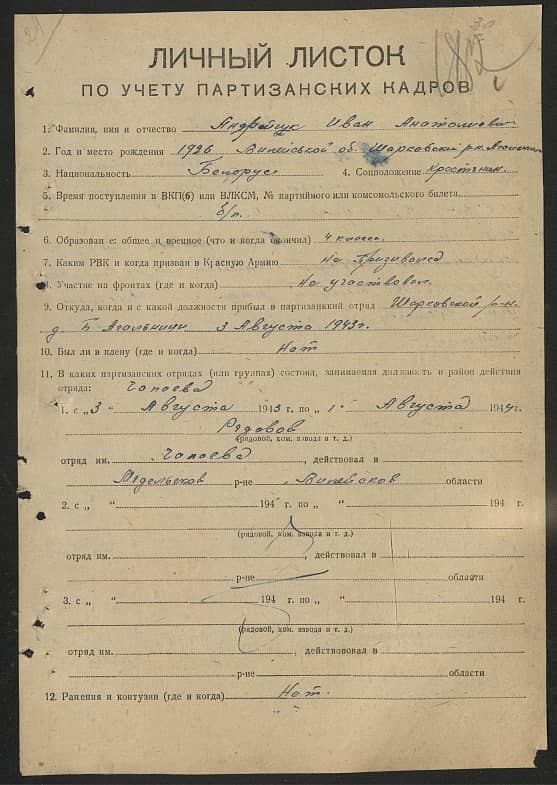 21
30
ЛИЧНЫЙ ЛИСТОК
ПО УЧЕТУ ПАРТИЗАНСКИХ КАДРОВ
1. Фамилия, имя и отчество Андрейчук Иван Анатолиевич
2. Год и место рождения 1926 Вилейськой об. Шарковский р-н.
3. Национальность Белорус 4. Соцположение крестьянин.
5. Время поступления в ВКП(б) или ВЛКСМ, № партийного или комсомольского билета
б/п.
6. Образован е: общее и военное (что и когда окончил) 4 класса.
7. Каким РВК и когда призван в Красную Армию На Призивался
8. Участие на фронтах (где и когда) На участвовал.
9. Откуда, когда и с какой должности прибыл в партизанский отряд Шарковской р-н.
д. Б Агольници 3 Августа 1943г.
10. Был ли в плену (где и когда) Нет
11. В каких партизанских отрядах (или группах) состоял, занимаемая должность и район действия
отряда: Чапаева
1. с „3 “ Августа 1943 г. по „ 1 “ Августа 1944г.
Рядовой
(рядовой, ком. взвода и т. д.)
отряд им. Чапаева, действовал в
Мядельском р-не Вилейской области
2. с „ “ 194 г. по „ “ 194 г.
(рядовой, ком. взвода и т. д.)
отряд им. , действовал в
р-не области
3. с „ “ 194 г. по „ “ 194 г.
(рядовой, ком. взвода и т. д.)
отряд им. , действововал в
р-не области
12. Ранения и контузии (где и когда) Нет.